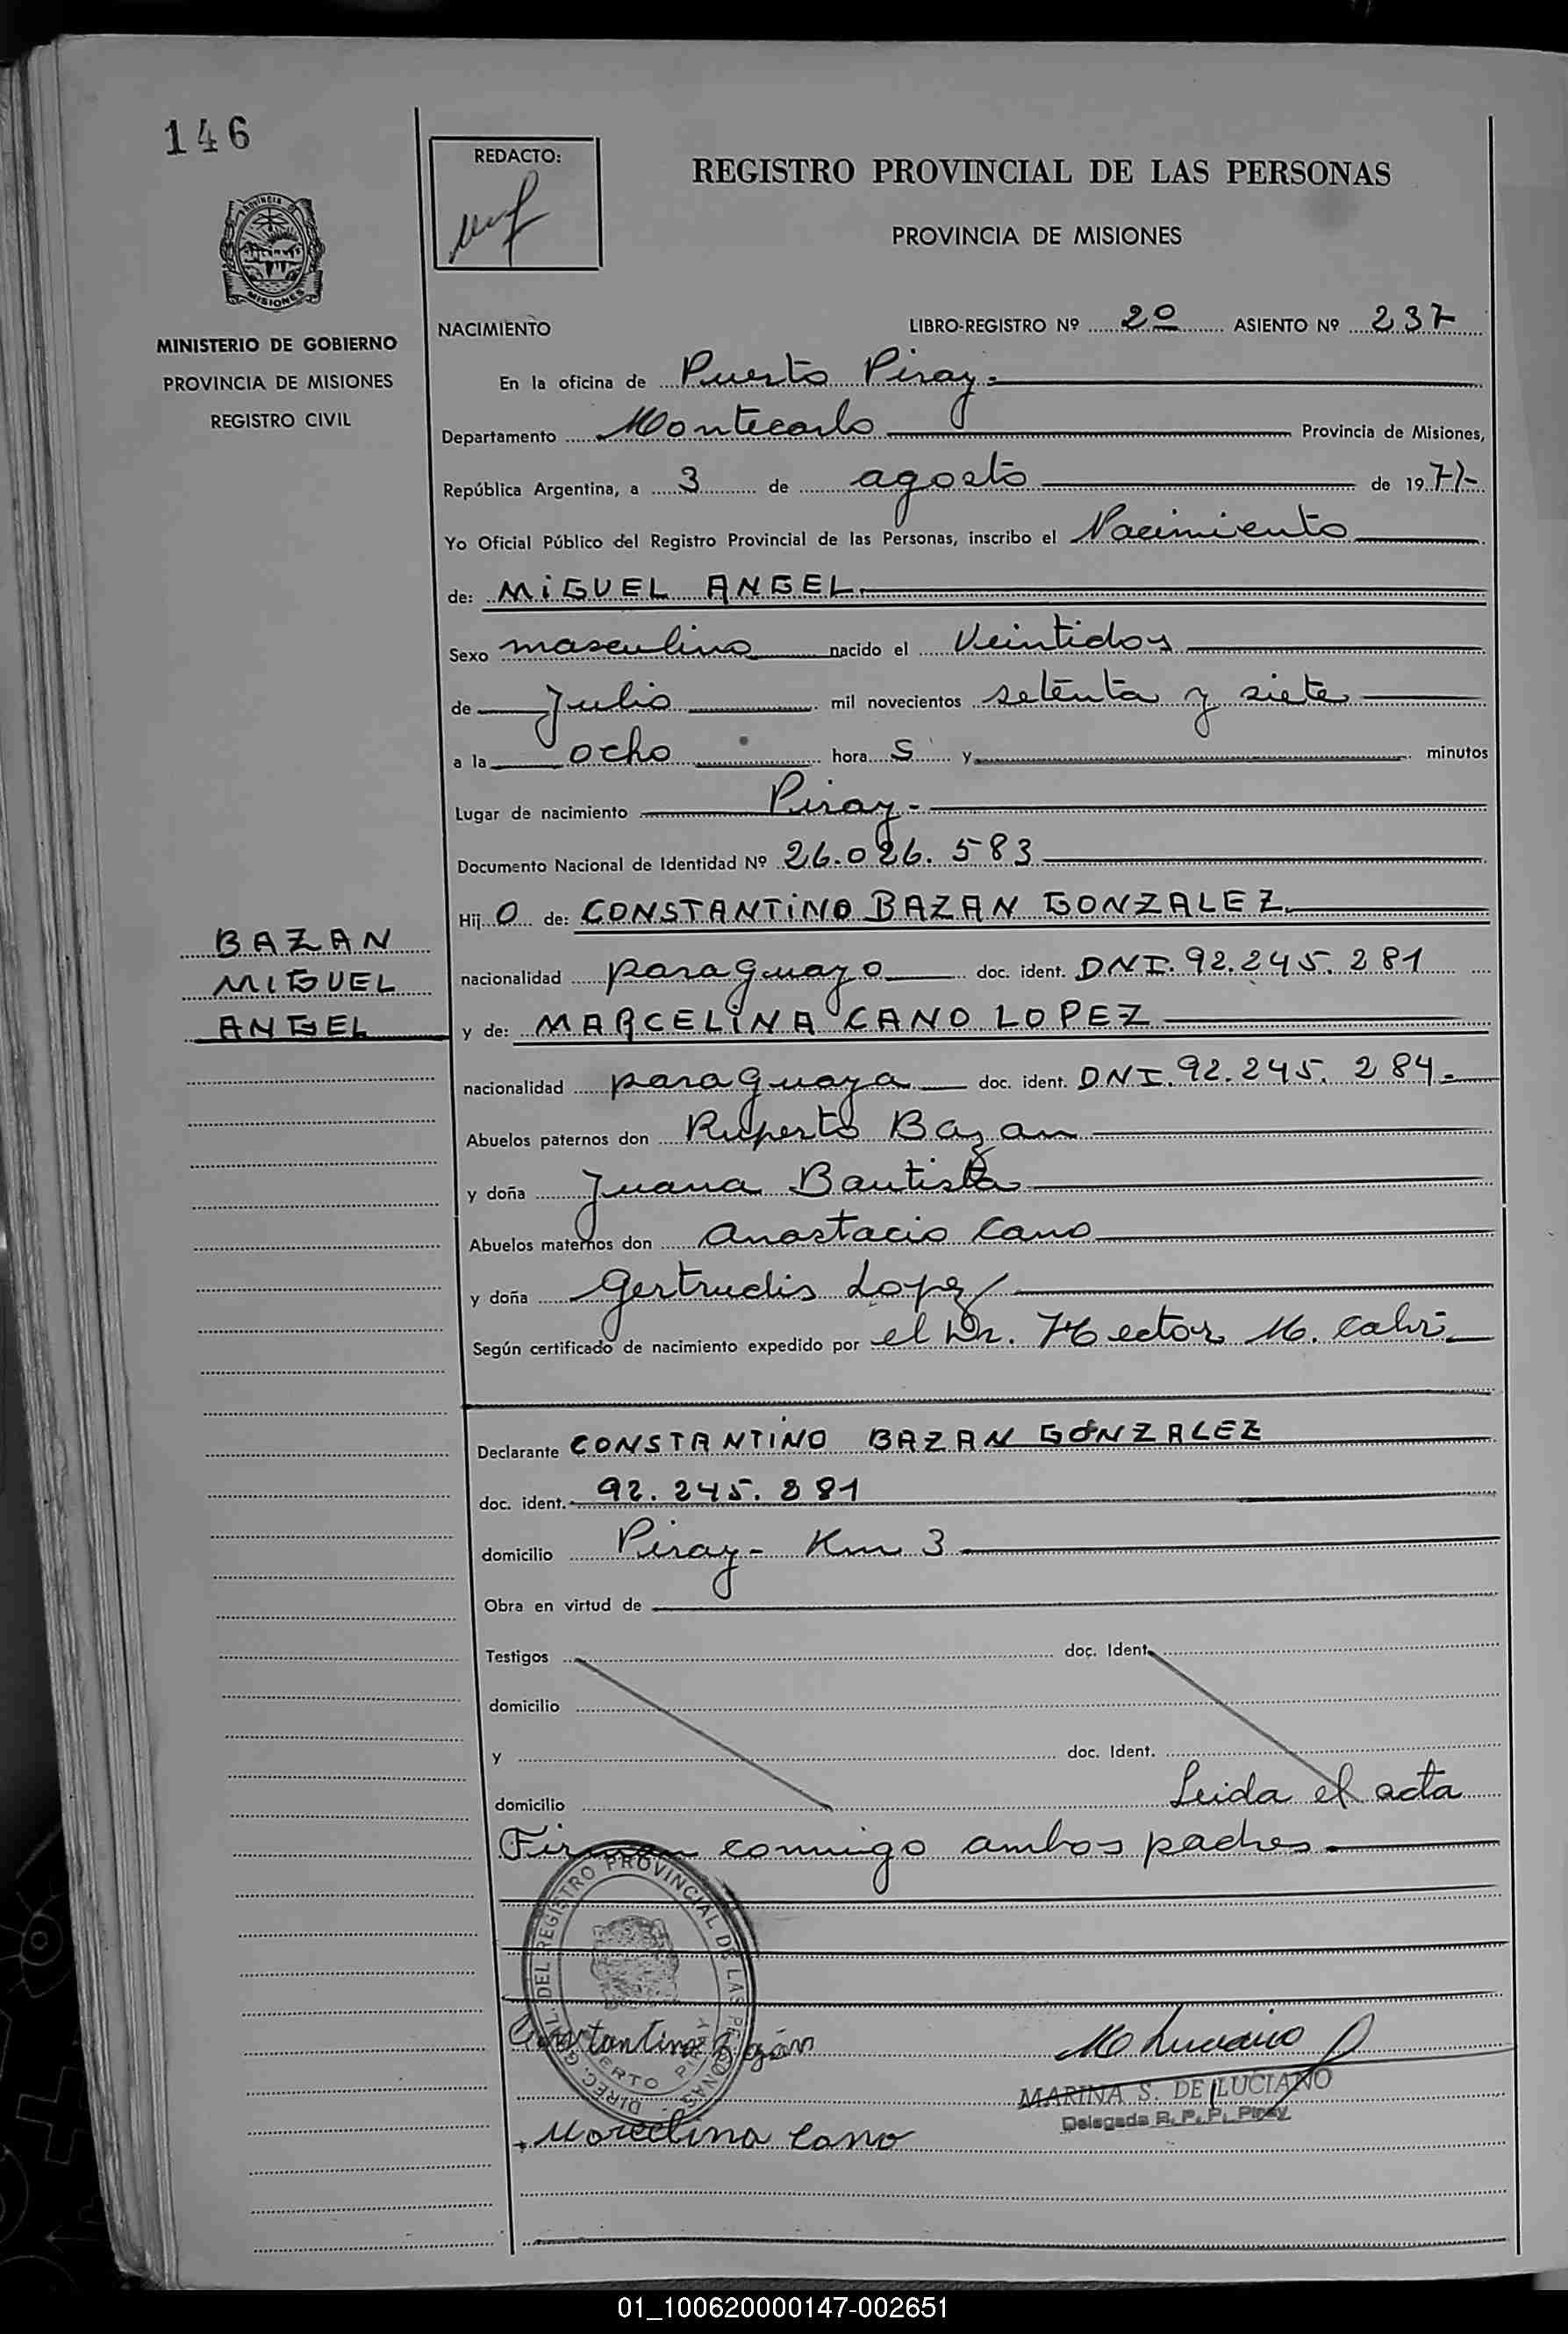 146
REDACTO:
REGISTRO PROVINCIAL DE LAS PERSONAS
PROVINCIA DE MISIONES
PROVINCIA DE
MISIONES
MINISTERIO DE GOBIERNO
PROVINCIA DE MISIONES
REGISTRO CIVIL
NACIMIENTO LIBRO-REGISTRO Nº 2º ASIENTO Nº 237
En la oficina de Puerto Piray.
Departamento Montecarlo Provincia de Misiones,
República Argentina, a 3 de agosto de 1977-
Yo Oficial Público del Registro Provincial de las Personas, inscribo el Nacimiento
de: MiGUEL ANGEL
Sexo masculino nacido el Veintidos
de Julio mil novecientos setenta y siete
a la ocho hora s y minutos
Lugar de nacimiento Piray-
Documento Nacional de Identidad Nº 26.026.583
Hij o de: CONSTANTiNO BAZAN GONZALEZ
BAZAN
MIGUEL
ANGEL
nacionalidad paraguayo doc. ident. DNI. 92.245.281
y de: MARCELiNA CANO LOPEZ
nacionalidad paraguaya doc. ident. DNI. 92.245.284-
Abuelos paternos don Ruperto Bazan
y doña Juana Bautista
Abuelos maternos don Anastacio Cano
y doña Gertrudis Lopez
Según certificado de nacimiento expedido por el Dr. Hector M. Cabri
Declarante CONSTANTiNO BAZAN GONZALEZ
doc. ident. 92.245.281
domicilio Piray- Km 3
Obra en virtud de
Testigos doc. Ident.
domicilio
y doc. Ident.
domicilio Leida el acta
Firman conmigo ambos padres
DIREC. GRAL. DEL REGISTRO PROVINCIAL DE LAS PERSONAS
PUERTO PIRAY
Constantino Bazán M Luciano
MARINA S. DE LUCIANO
Delegada R. P. P. Piray
Marcelina Cano
01_100620000147-002651